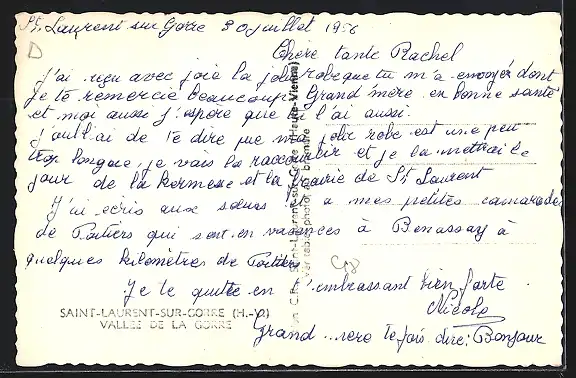 St Laurent sur Gorre 30 juillet 1956
D
Chère tante Rachel
J'ai reçu avec joie la jolie robe que tu m'a envoyér dont
je te remercie beaucoup. Grand'mère en bonne santé
et moi aussi j'espère que l'ai aussi.
J'aul'ai de te dire que ma jolie robe est une peu
trop longue, je vais la raccourtir et je la mettrai le
jour de la kermesse et la frairie de St Laurent
J'ai ecris aux sœurs a mes petites camarades
de Poitiers qui sont en vacances à Benassay à
quelques kilomètres de Poitiers
C18
Je te quitte en t'embrassant bien forte
Nicole
SAINT-LAURENT-SUR-GORRE (H.-V.)
VALLÉE DE LA GORRE
Grand mere te fais dire: Bonjour
Saint-Laurent-sur-Gorre (Haute-Vienne)